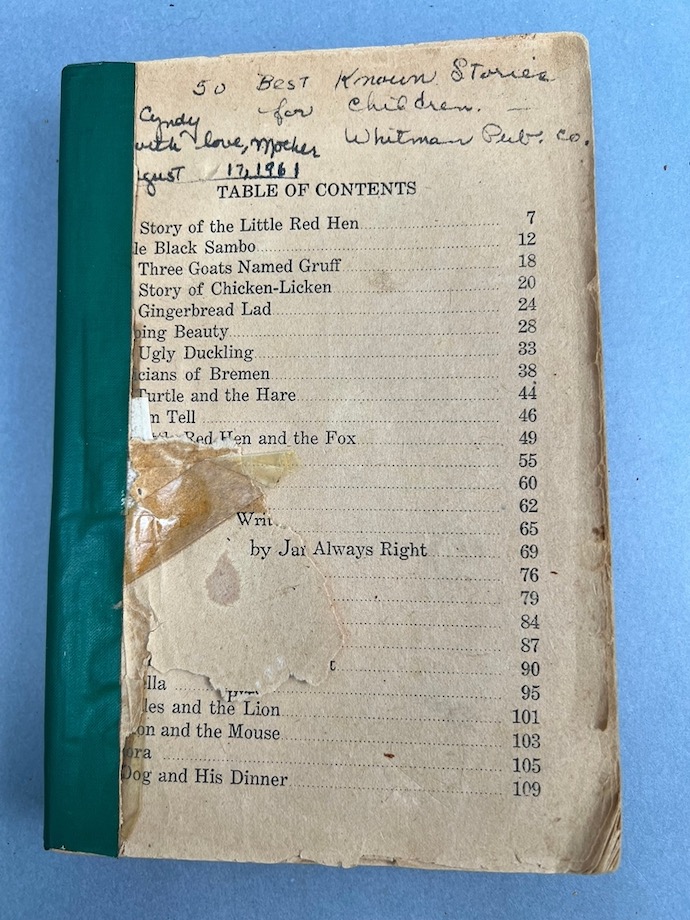 50 Best Known Stories
for Children. —
Cyndy
with love, Mother Whitman Pub. co.
gust 17, 1961
TABLE OF CONTENTS
Story of the Little Red Hen 7
le Black Sambo 12
Three Goats Named Gruff 18
Story of Chicken-Licken 20
Gingerbread Lad 24
ping Beauty 28
Ugly Duckling 33
cians of Bremen 38
Turtle and the Hare 44
m Tell 46
Red Hen and the Fox 49
55
60
62
Writ 65
by Jan Always Right 69
76
79
84
87
t 90
ella 95
les and the Lion 101
on and the Mouse 103
ora 105
Dog and His Dinner 109